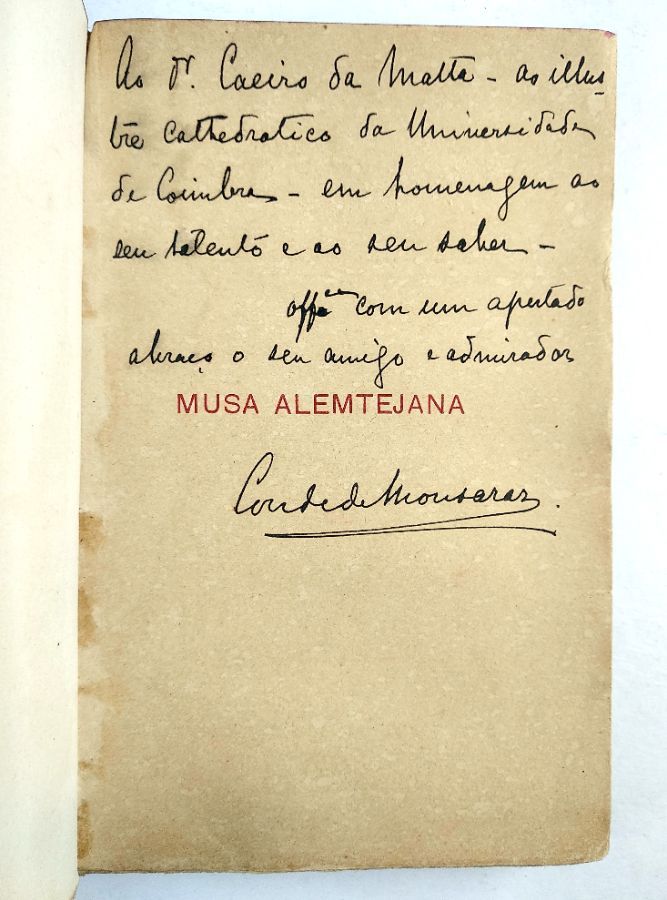 Ao Dr. Caeiro da Matta - ao illus-
tre cathedratico da Universidade
de Coimbra - em homenagem ao
seu talento e ao seu saber -
offce com um apertado
abraço o seu amigo e admirador
MUSA ALEMTEJANA
Conde de Monsaraz.